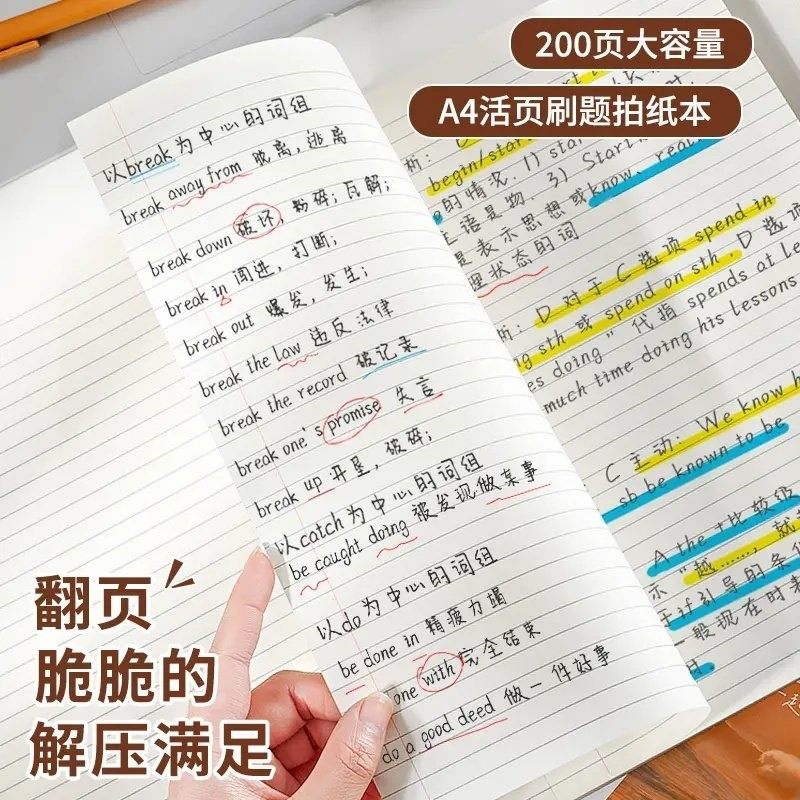 200页大容量
A4活页刷题拍纸本
以break为中心的词组
break away from 脱离，逃离
break down 破坏，粉碎；瓦解；
break in 闯进，打断；
break out 爆发，发生；
break the law 违反法律
break the record 破记录
break one's promise 失言
break up 开垦，破碎；
以catch为中心的词组
be caught doing 被发现做某事
以do为中心的词组
be done in 精疲力竭
one with 完全结束
do a good deed 做一件好事
begin/start
的情况. 1) star
主语是物. 3) Start
是表示思想或know, real
理状态的词
析: D 对于 C 选项 spend in
ng sth 或 spend on sth, D 选项
es doing" 代指 spends at le
much time doing his lessons
C 主动: We know h
sb be known to be
A the +比较级
示 "越……, 就
于if引导的条
一般现在时
翻页
脆脆的
解压满足